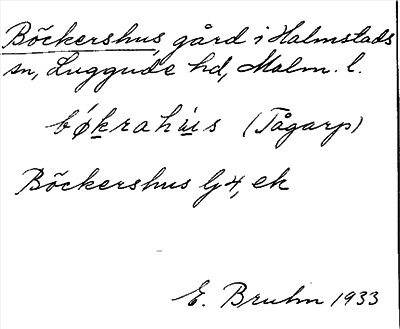 Böckershus, gård i Halmstads
sn, Luggude hd, Malm. l.
bǿkrahús (Tågarp)
Böckershus Gj4, ek
E. Bruhn 1933